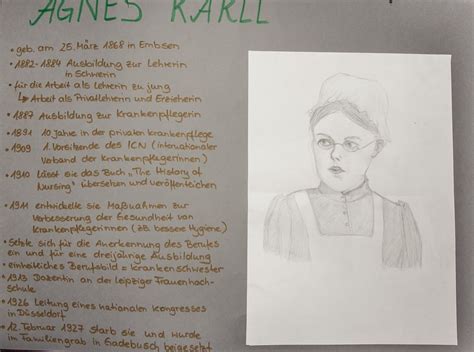 AGNES KARLL
• geb. am 25. März 1868 in Embsen
• 1882-1884 Ausbildung zur Lehrerin
in Schwerin
• für die Arbeit als Lehrerin zu jung
↳ Arbeit als Privatlehrerin und Erzieherin
• 1887 Ausbildung zur Krankenpflegerin
• 1891 10 Jahre in der privaten Krankenpflege
• 1909 1. Vorsitzende des ICN (internationaler
Verband der Krankenpflegerinnen)
• 1910 lässt sie das Buch „The History of
Nursing" übersehen und veröffentlichen
• 1911 entwickelte sie Maßnahmen zur
Verbesserung der Gesundheit von
Krankenpflegerinnen (zB. bessere Hygiene)
• Setzte sich für die Anerkennung des Berufes
ein und für eine dreijährige Ausbildung
• einheitliches Berufsbild = Krankenschwester
• 1913 Dozentin an der Leipziger Frauenhoch-
schule
• 1926 Leitung eines nationalen Kongresses
in Düsseldorf
• 12. Februar 1927 starb sie und wurde
im Familiengrab in Gadebusch beigesetzt